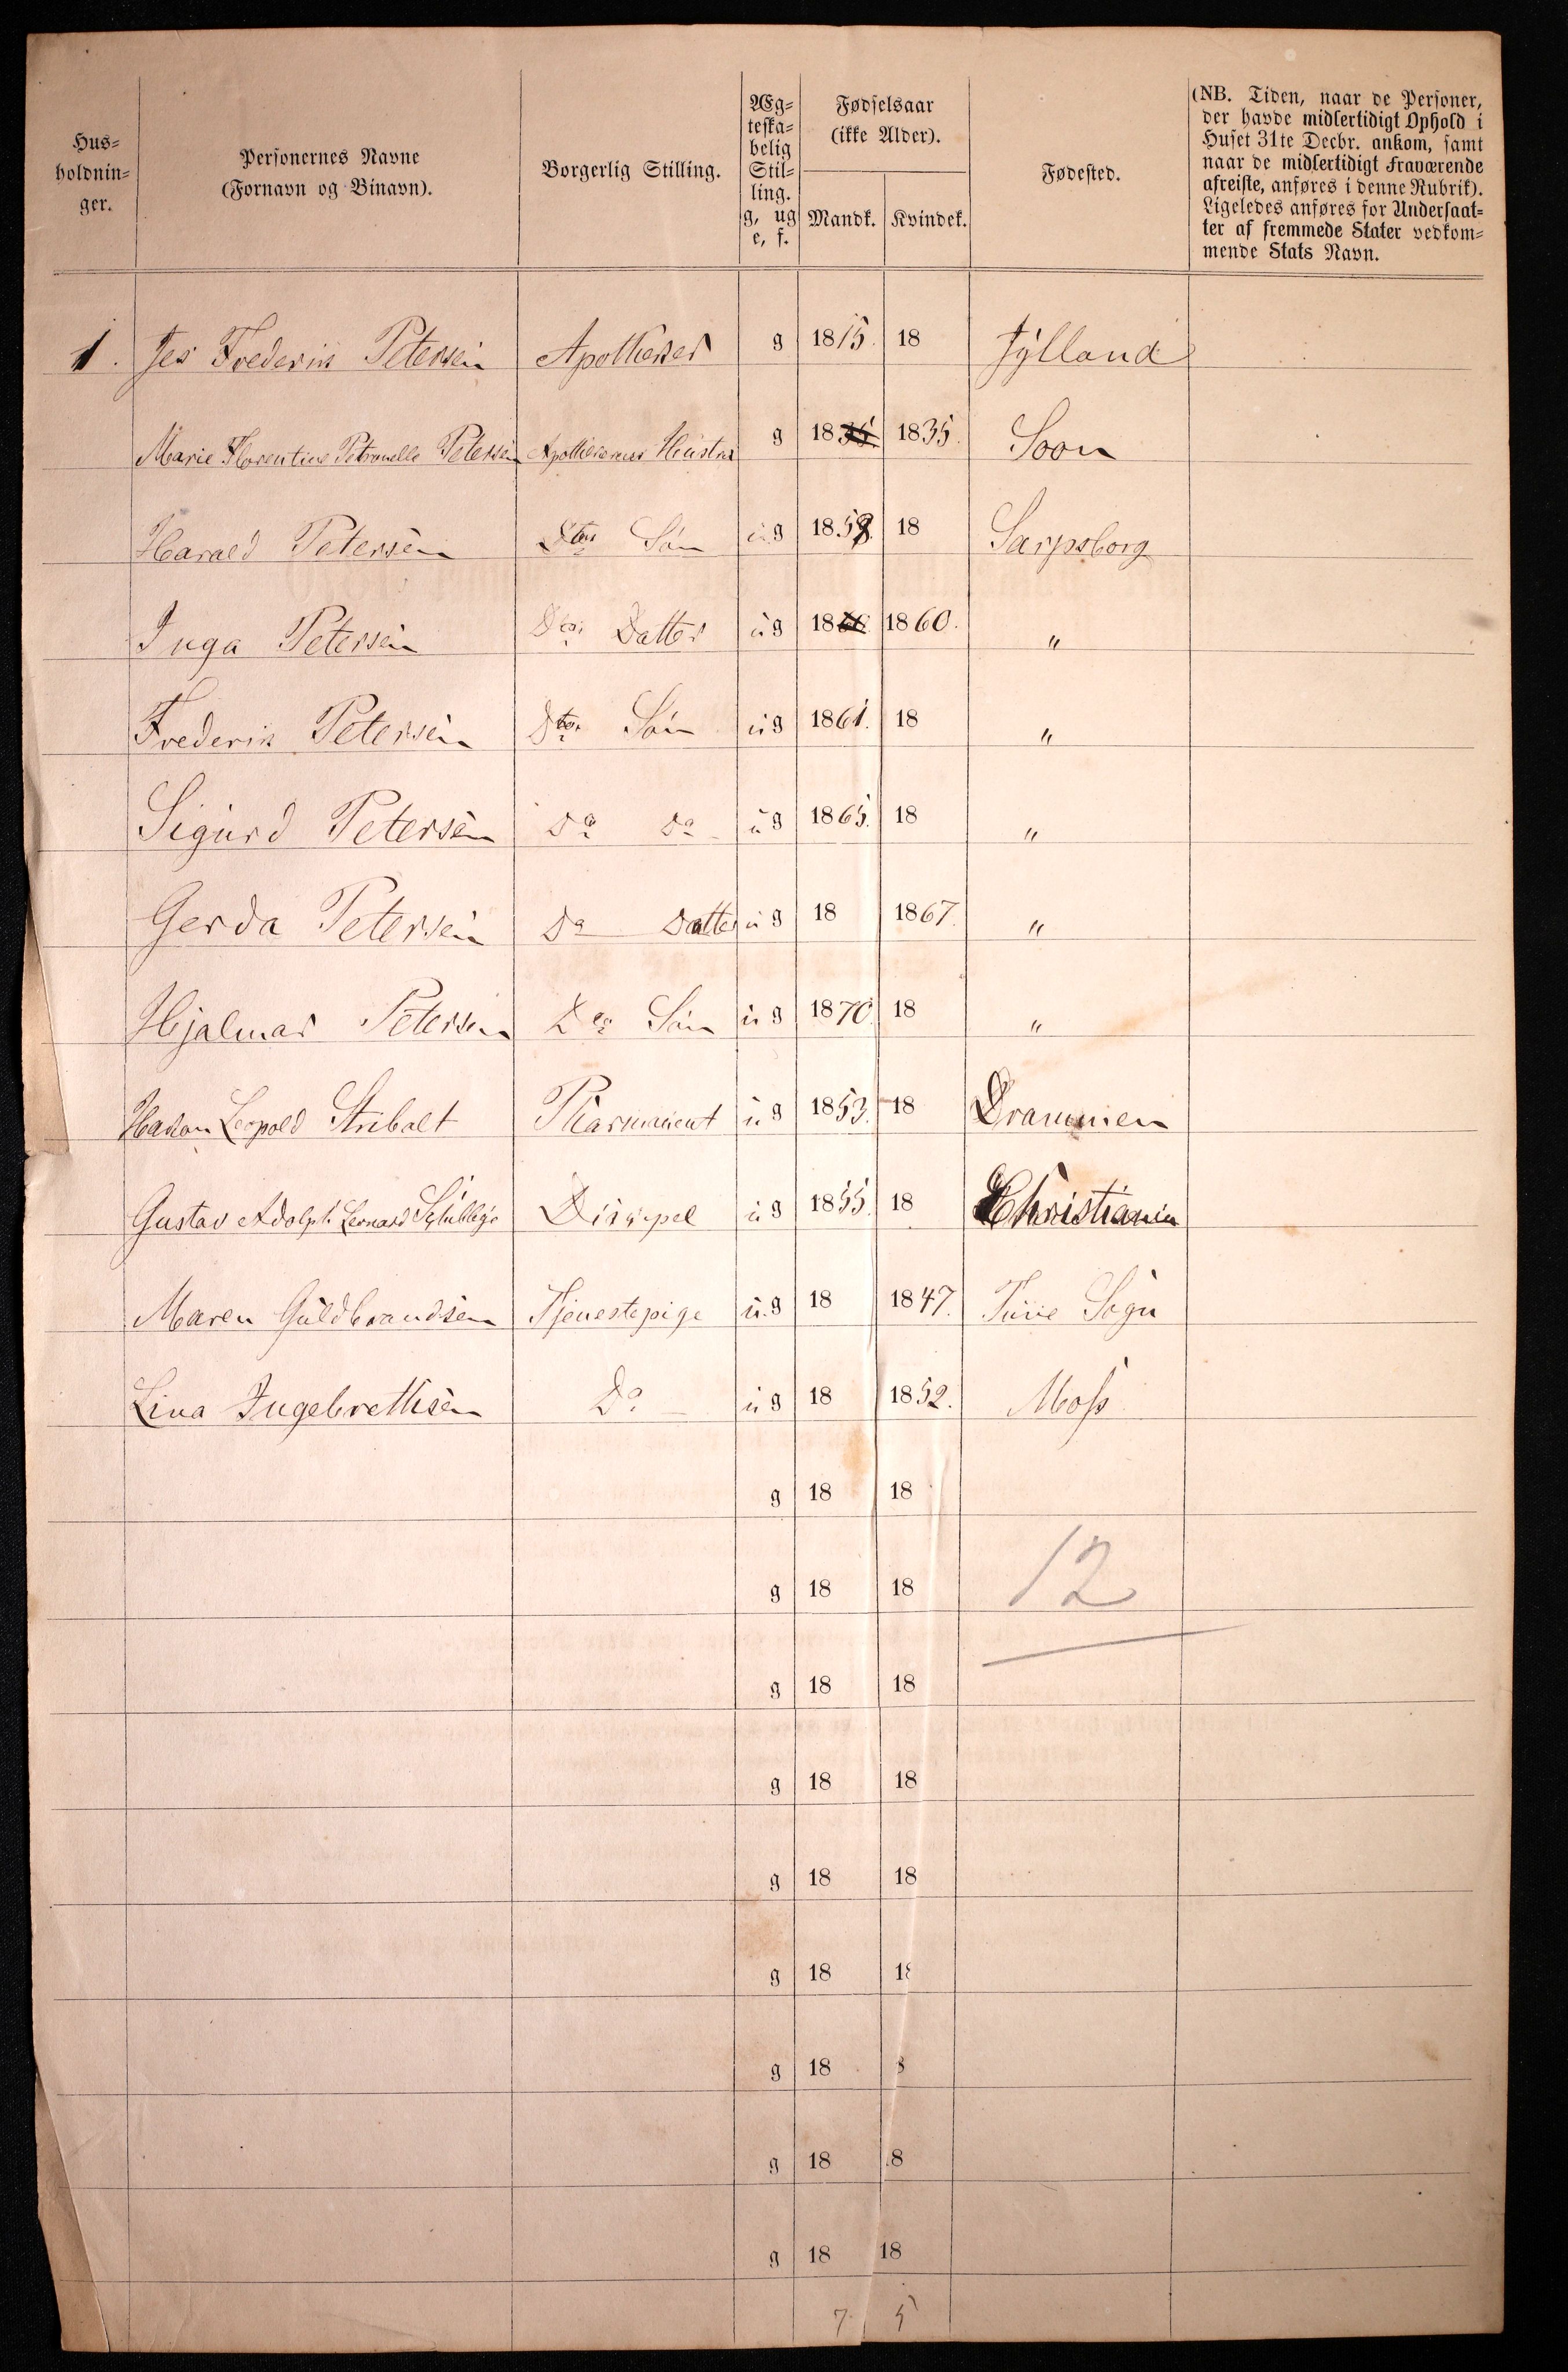 Hus=
holdnin=
ger.
Personernes Navne
(Fornavn og Binavn).
Borgerlig Stilling.
Æg=
teska=
belig
Stil=
ling.
g, ug
e, f.
Fødselsaar
(ikke Alder).
Mandk. Kvindek.
Fødested.
(NB. Tiden, naar de Personer,
der havde midlertidigt Ophold i
Huset 31te Decbr. ankom, samt
naar de midlertidigt Fraværende
afreiste, anføres i denne Rubrik).
Ligeledes anføres for Undersaat=
ter af fremmede Stater vedkom=
mende Stats Navn.
1. Jes Frederik Petersen Apotheker g 1815. 18 Jylland
Marie Florentine Petronelle Petersen Apothekerens Hustru g 18 1835. Soon
Harald Petersen Des Søn u.g 1858. 18 Sarpsborg
Inga Petersen Do. Datter ug 18 1860. "
Frederik Petersen Do. Søn ug 1861. 18 "
Sigurd Petersen Do Do ug 1865. 18 "
Gerda Petersen Do Datter ug 18 1867. "
Hjalmar Petersen Do Søn ug 1870. 18 "
Hakon Leopold Stribolt Pharmaceut ug 1853. 18 Drammen
Gustav Adolph Leonard Discipel ug 1855. 18 Christiania
Maren Guldbrandsen Tjenestepige u.g 18 1847. Tune Sogn
Lina Ingebrethsen Do ug 18 1852. Moss
g 18 18
g 18 18 12
g 18 18
g 18 18
g 18 18
g 18 18
g 18 8
g 18 18
g 18 18
7 5